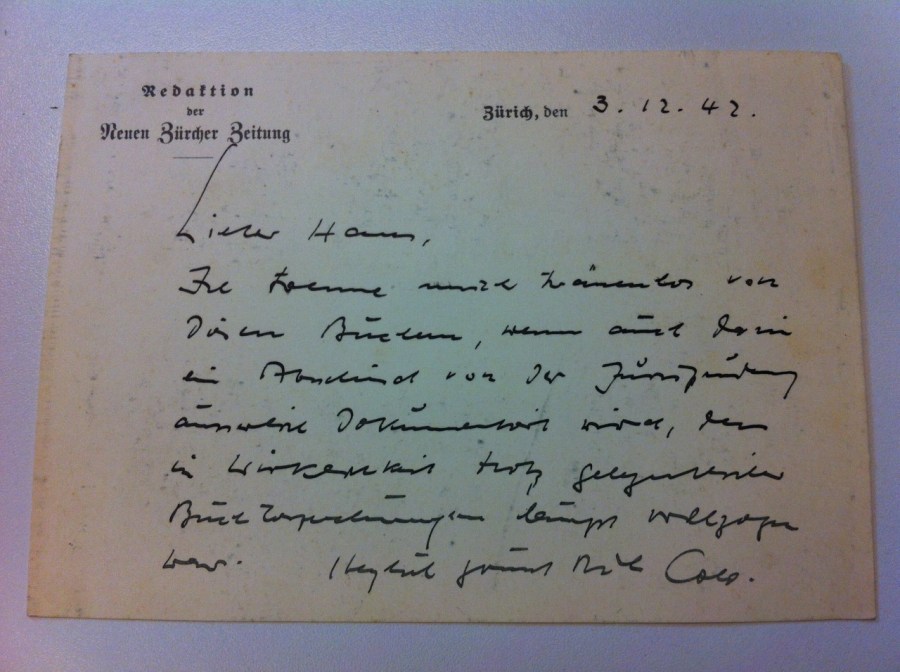 Redaktion
der
Neuen Zürcher Zeitung
Zürich, den 3.12.42.
Lieber Hans,
Ich trenne mich tränenlos von
diesen Büchern, wenn auch darin
ein Abschied von der Jurisprudenz
äusserlich dokumentiert wird, der
in Wirklichkeit trotz gelegentlicher
Buchbesprechungen längst vollzogen
war. Herzlich grüsst Dich